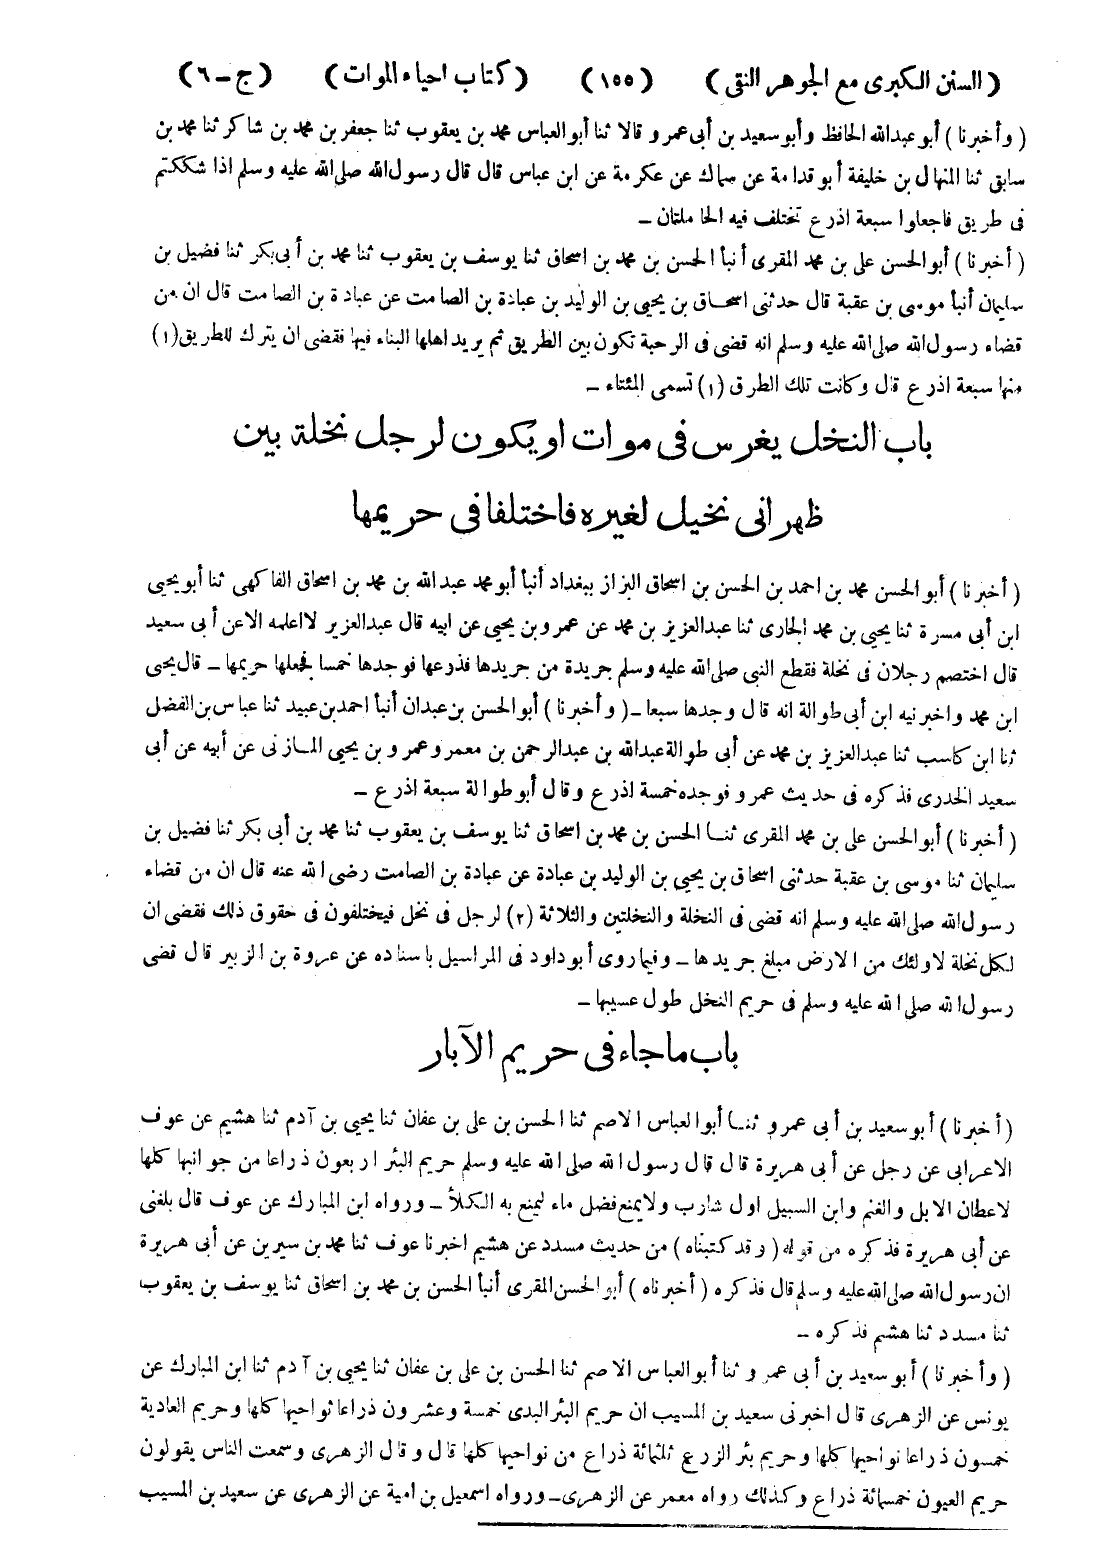 ( السنن الكبرى مع الجوهر النقى ) ( ١٥٥ ) ( كتاب احياء الموات ) ( ج - ٦ )
( وأخبرنا ) أبو عبدالله الحافظ وأبو سعيد بن أبى عمرو قالا ثنا أبو العباس محمد بن يعقوب ثنا جعفر بن محمد بن شاكر ثنا محمد بن
سابق ثنا المنهال بن خليفة أبو قدامة عن سماك عن عكرمة عن ابن عباس قال قال رسول الله صلى الله عليه وسلم اذا شككتم
فى طريق فاجعلوا سبعة اذرع تختلف فيه الحاملتان ـ
( أخبرنا ) أبو الحسن على بن محمد المقرى أنبأ الحسن بن محمد بن اسحاق ثنا يوسف بن يعقوب ثنا محمد بن أبى بكر ثنا فضيل بن
سليمان أنبأ موسى بن عقبة قال حدثنى اسحاق بن يحيى بن الوليد بن عبادة بن الصامت عن عبادة بن الصامت قال ان من
قضاء رسول الله صلى الله عليه وسلم انه قضى فى الرحبة تكون بين الطريق ثم يريد اهلها البناء فيها فقضى ان يترك للطريق (١)
منها سبعة اذرع قال وكانت تلك الطرق (١) تسمى المئتاء ـ
باب النخل يغرس فى موات او يكون لرجل نخلة بين
ظهرانى نخيل لغيره فاختلفا فى حريمها
( أخبرنا ) أبو الحسن محمد بن احمد بن الحسن بن اسحاق البزاز ببغداد أنبأ أبو محمد عبد الله بن محمد بن اسحاق الفاكهى ثنا أبو يحيى
ابن أبى مسرة ثنا يحيى بن محمد الجارى ثنا عبدالعزيز بن محمد عن عمرو بن يحيى عن ابيه قال عبدالعزيز لا اعلمه الا عن أبى سعيد
قال اختصم رجلان فى نخلة فقطع النبى صلى الله عليه وسلم جريدة من جريدها فذرعها فوجدها خمسا فجعلها حريمها ـ قال يحيى
ابن محمد واخبرنيه ابن أبى طوالة انه قال وجدها سبعا ـ ( وأخبرنا ) أبو الحسن بن عبدان أنبأ احمد بن عبيد ثنا عباس بن الفضل
ثنا ابن كاسب ثنا عبدالعزيز بن محمد عن أبى طوالة عبدالله بن عبدالرحمن بن معمر وعمرو بن يحيى المازنى عن أبيه عن أبى
سعيد الخدرى فذكره فى حديث عمرو فوجده خمسة اذرع وقال أبو طوالة سبعة اذرع ـ
( أخبرنا ) أبو الحسن على بن محمد المقرى ثنا الحسن بن محمد بن اسحاق ثنا يوسف بن يعقوب ثنا محمد بن أبى بكر ثنا فضيل بن
سليمان ثنا موسى بن عقبة حدثنى اسحاق بن يحيى بن الوليد بن عبادة عن عبادة بن الصامت رضى الله عنه قال ان من قضاء
رسول الله صلى الله عليه وسلم انه قضى فى النخلة والنخلتين والثلاثة (٢) لرجل فى نخل فيختلفون فى حقوق ذلك فقضى ان
لكل نخلة لاولئك من الارض مبلغ جريدها ـ وفيما روى أبو داود فى المراسيل باسناده عن عروة بن الزبير قال قضى
رسول الله صلى الله عليه وسلم فى حريم النخل طول عسيبها ـ
باب ما جاء فى حريم الآبار
( أخبرنا ) أبو سعيد بن أبى عمرو ثنا أبو العباس الاصم ثنا الحسن بن على بن عفان ثنا يحيى بن آدم ثنا هشيم عن عوف
الاعرابى عن رجل عن أبى هريرة قال قال رسول الله صلى الله عليه وسلم حريم البئر اربعون ذراعا من جوانبها كلها
لاعطان الابل والغنم وابن السبيل اول شارب ولا يمنع فضل ماء ليمنع به الكلأ ـ ورواه ابن المبارك عن عوف قال بلغنى
عن أبى هريرة فذكره من قوله ( وقد كتبناه ) من حديث مسدد عن هشيم اخبرنا عوف ثنا محمد بن سيرين عن أبى هريرة
ان رسول الله صلى الله عليه وسلم قال فذكره ( أخبرناه ) أبو الحسن المقرى أنبأ الحسن بن محمد بن اسحاق ثنا يوسف بن يعقوب
ثنا مسدد ثنا هشيم فذكره ـ
( وأخبرنا ) أبو سعيد بن أبى عمرو ثنا أبو العباس الاصم ثنا الحسن بن على بن عفان ثنا يحيى بن آدم ثنا ابن المبارك عن
يونس عن الزهرى قال اخبرنى سعيد بن المسيب ان حريم البئر البدى خمسة وعشرون ذراعا نواحيها كلها وحريم العادية
خمسون ذراعا نواحيها كلها وحريم بئر الزرع ثلثمائة ذراع من نواحيها كلها قال وقال الزهرى وسمعت الناس يقولون
حريم العيون خمسمائة ذراع وكذلك رواه معمر عن الزهرى ـ ورواه اسمعيل بن امية عن الزهرى عن سعيد بن المسيب